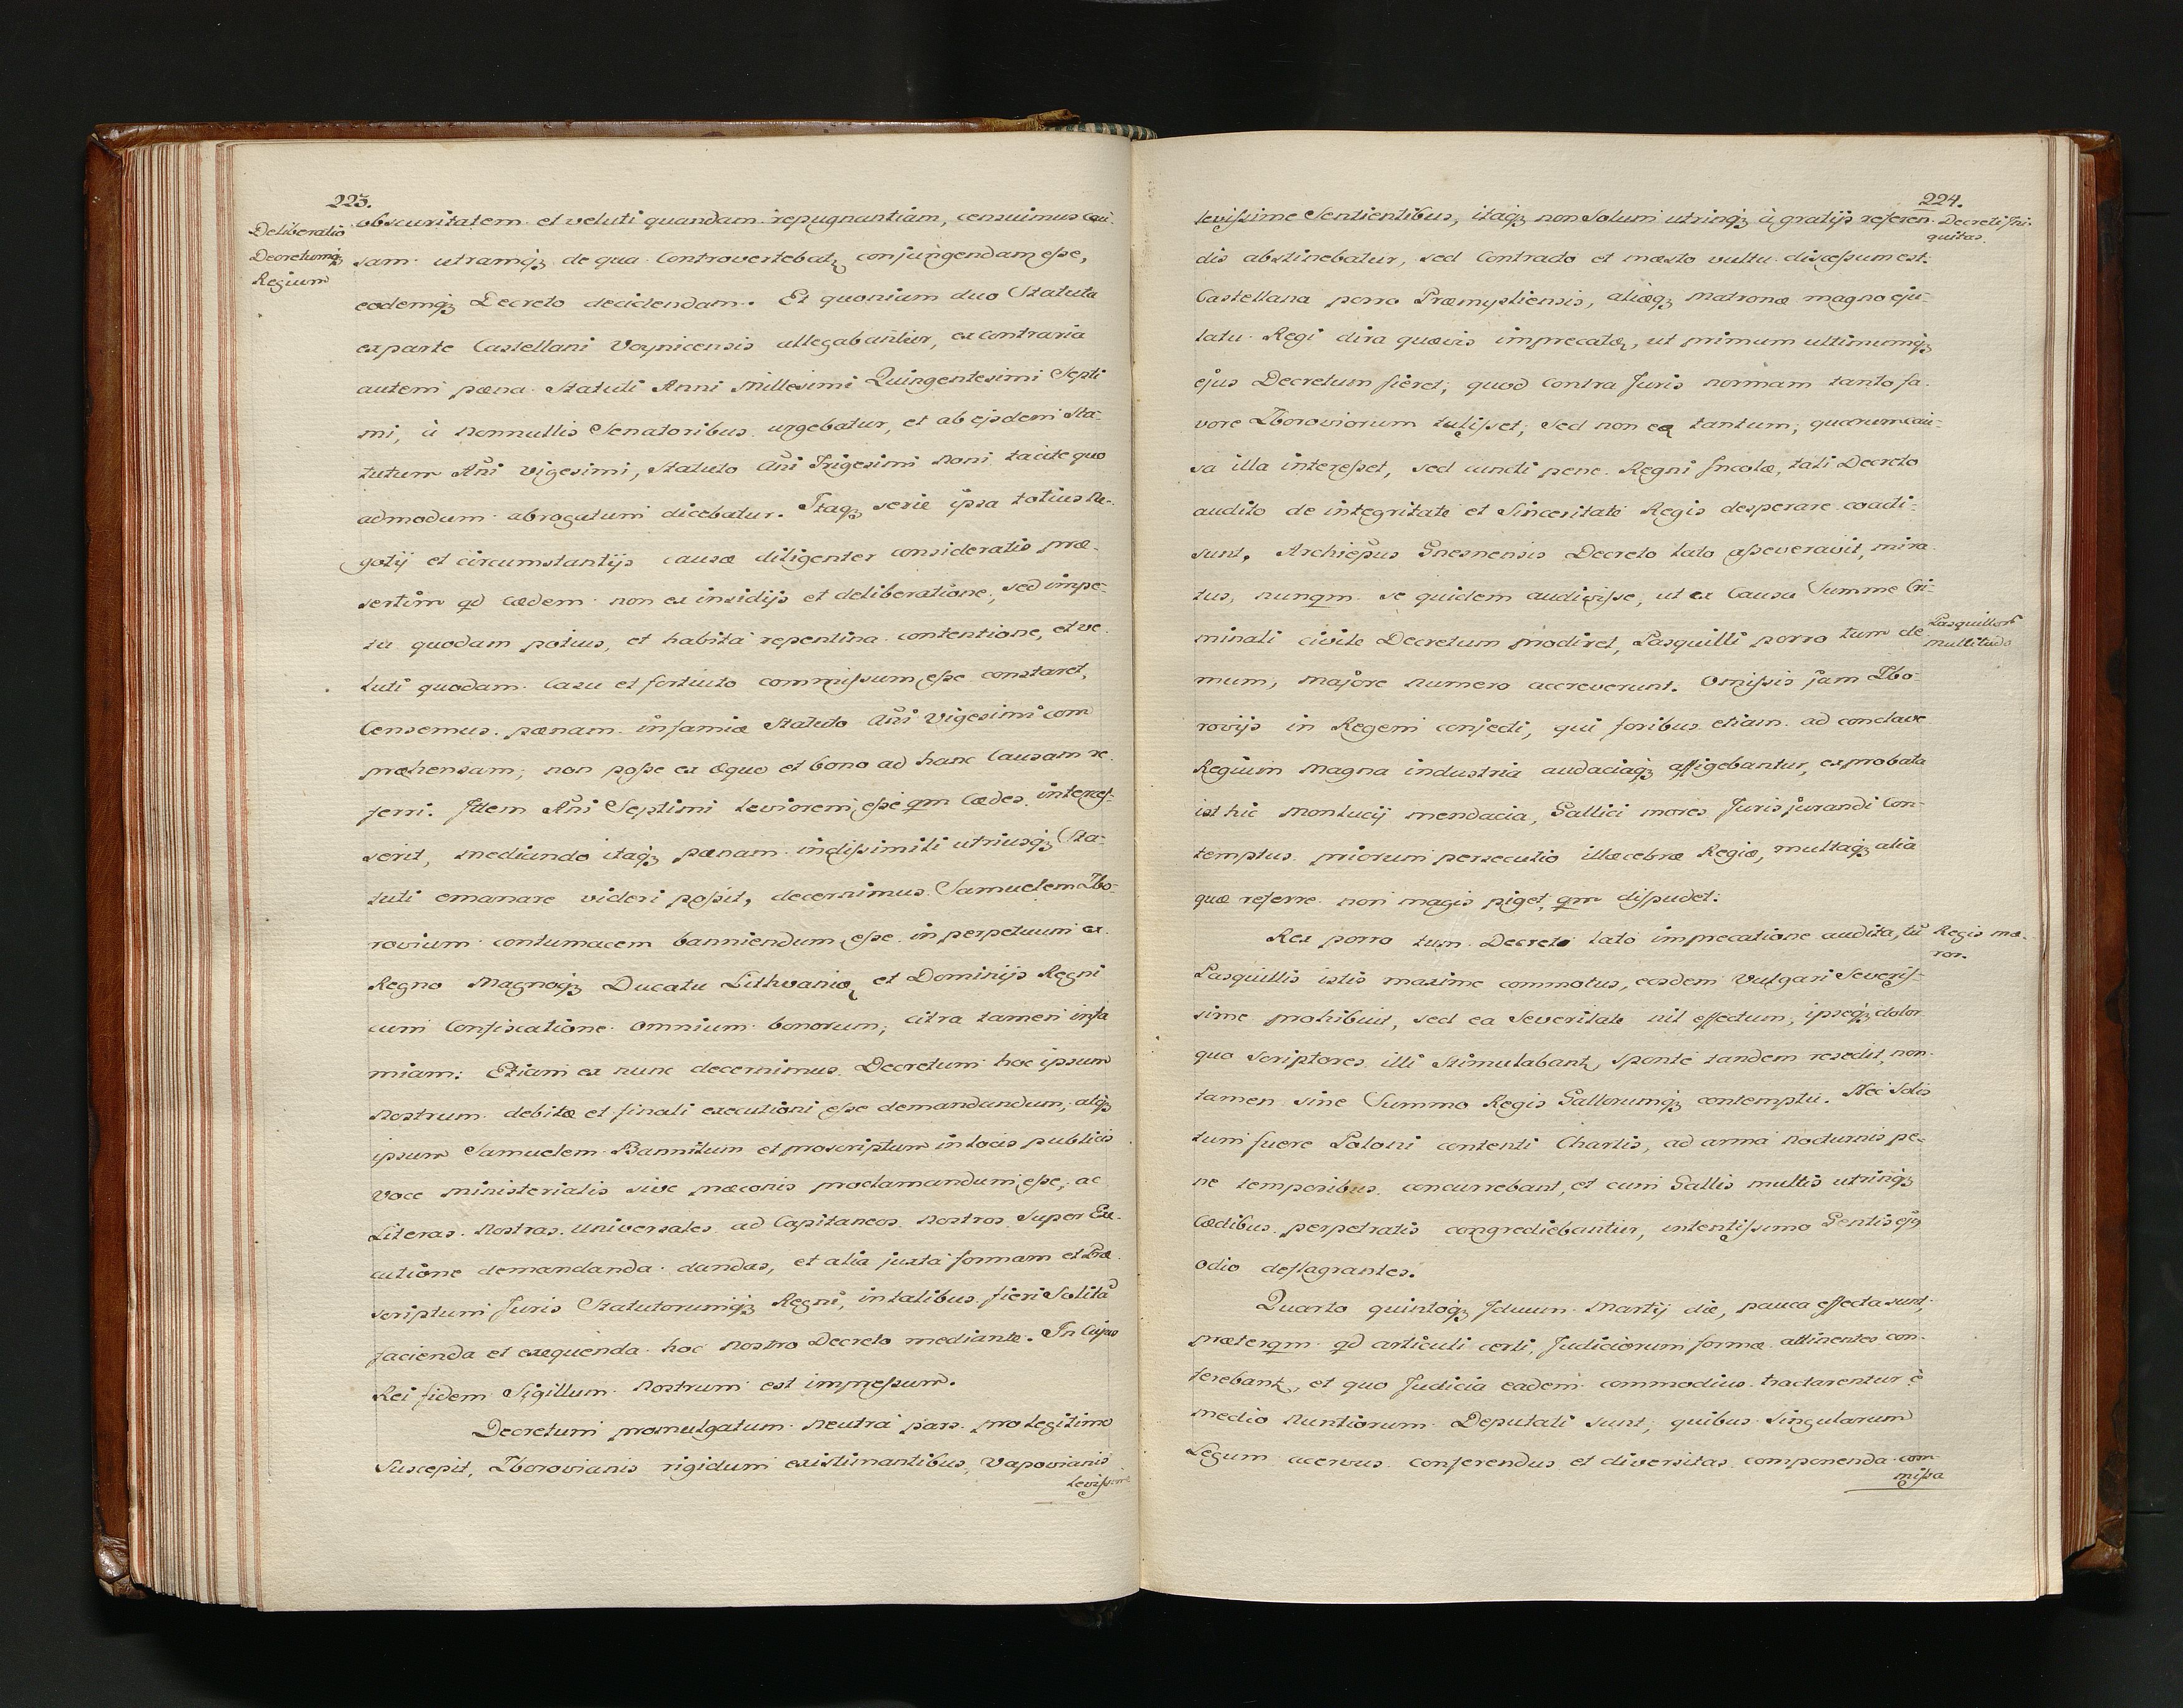 223.
Deliberatio
Decretumq́;
Regium
obscuritatem et veluti quandam repugnantiam, censuimus cau-
sam utramq́; de qua Controvertebatr conjungendam eſse,
eodemq́; Decreto decidendam. Et quonium duo Statuta
ex parte Castellani Voynicensis allegabantur, ex contraria
autem pœna Statuti Anni Millesimi Quingentesimi Septi
mi, à Nonnullis Senatoribus urgebatur, et ab ejsdem Sta-
tutum Añi vigesimi, Statuto Añi Trigesimi Noni tacite quo
admodum abrogatum dicebatur. Itaq́; serie ipsa totius Ne-
gotij et circumstantijs causæ diligenter consideratis præ-
sertim qd Cædem non ex insidijs et deliberatione, sed impe-
tu quodam potius, et habita repentina contentione, et ve-
luti quodam Casu et fortuito commiſsum eſse constaret,
Censemus pœnam infamiæ Statuto Añi Vigesimi com
præhensam, non poſse ex Æquo et bono ad hanc Causam re-
ferri. Item Añi Septimi leviorem eſse qm Cædes interceſ-
serit, mediando itaq́; pœnam indiſsimili utriusq́; Sta-
tuti emanare videri poſsit, decernimus Samuelem Zbo-
rovium contumacem banniendum eſse in perpetuum ex
Regno Magnoq́; Ducatu Lithvaniæ et Dominijs Regni
cum Confiscatione omnium bonorum, citra tamen infa
miam: Etiam ex nunc decernimus Decretum hoc ipsum
Nostrum debitæ et finali executioni eſse demandandum, atq́;
ipsum Samuelem Bannitum et proscriptum in locis publicis
voce ministerialis sive præconis proclamandum eſse, ac
Literas Nostras Universales ad Capitaneos Nostros Super Exe-
cutione demandanda dandas, et alia juxta formam et Præ
scriptum Juris Statutorumq́; Regni, in talibus fieri Solita
facienda et exequenda hoc Nostro Decreto mediante. In Cujus
Rei fidem Sigillum Nostrum est impreſsum.
Decretum promulgatum Neutra pars pro legitimo
Suscepit, Zborovianis rigidum existimantibus, Vapovianis
leviſsime
224.
leviſsime Sentientibus, itaq́; non Solum utrinq́; à gratijs referen-
dis abstinebatur, sed Contracto et mæsto vultu disceſsum est.
Castellana porro Præmysliensis, aliæq́; Matronæ magno eju-
latu Regi dira quævis imprecatæ, ut primum ultimumq́;
ejus Decretum fieret, quod Contra Juris normam tanto fa-
vore Zboroviorum tuliſset, Sed non ea tantum, quarum cau-
sa illa intereſset, sed cuncti pene Regni Incolæ, tali Decreto
audito de integritate et Sinceritate Regis desperare coacti
sunt, Archiep̃us Gnesnensis Decreto lato aſseveravit, mira-
tus, nunqm se quidem audiviſse, ut ex Causa Summe Cri-
minali civile Decretum prodiret, Pasquilli porro tum de
mum, majore numero accreverunt. Omiſsis jam Zbo-
rovijs in Regem conjecti, qui foribus etiam ad conclave
Regium Magna industria audaciaq́; affigebantur, exprobata
ist hic Monlucij mendacia, Gallici mores Juris jurandi Con-
temptus priorum persecutio illæcebræ Regiæ, multaq́; alia
quæ referre non magis piget, qm diſpudet.
Rex porro tum Decreto lato imprecatione audita, tũ
Pasquillis istis maxime commotus, eosdem Vulgari Severiſ-
sime prohibuit, sed ea Severitate nil effectum, ipseq́; dolor
quo Scriptores illi Stimulabantr, sponte tandem resedit, non
tamen sine Summo Regis Gallorumq́; contemptu. Nec Solis
tum fuere Poloni contenti Chartis, ad arma Nocturnis pe-
ne temporibus concurrebant, et cum Gallis multis utrinq́;
Cædibus perpetratis congrediebantur, intentiſsimo Gentis ejq
odio deflagrantes.
Quarto quintoq́; Iduum Martij die, pauca effecta sunt,
præterqm qd articuli certi, Judiciorum formæ attinentes con-
ferebantr, et quo Judicia eadem commodius tractarentur è
medio Nuntiorum Deputati sunt, quibus Singularum
Legum acervus conferendus et diversitas componenda com-
miſsa
Decreti Ini-
quitas.
Pasquilloꝝ
multitudo
Regis mæ-
ror.